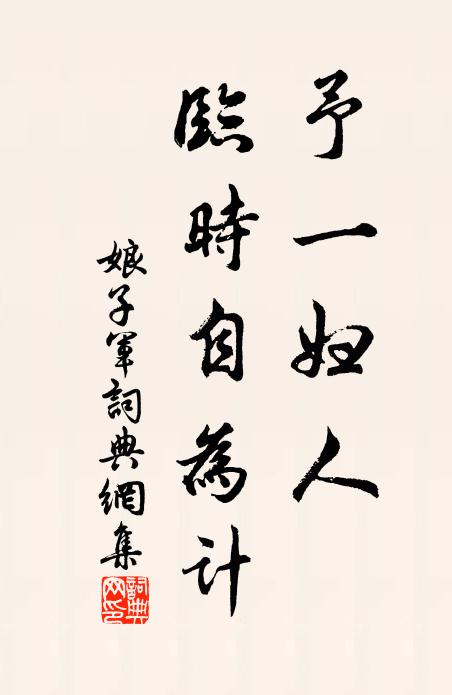 予一妇人
臨時自為计
娘子軍詞典網集
詞典网印